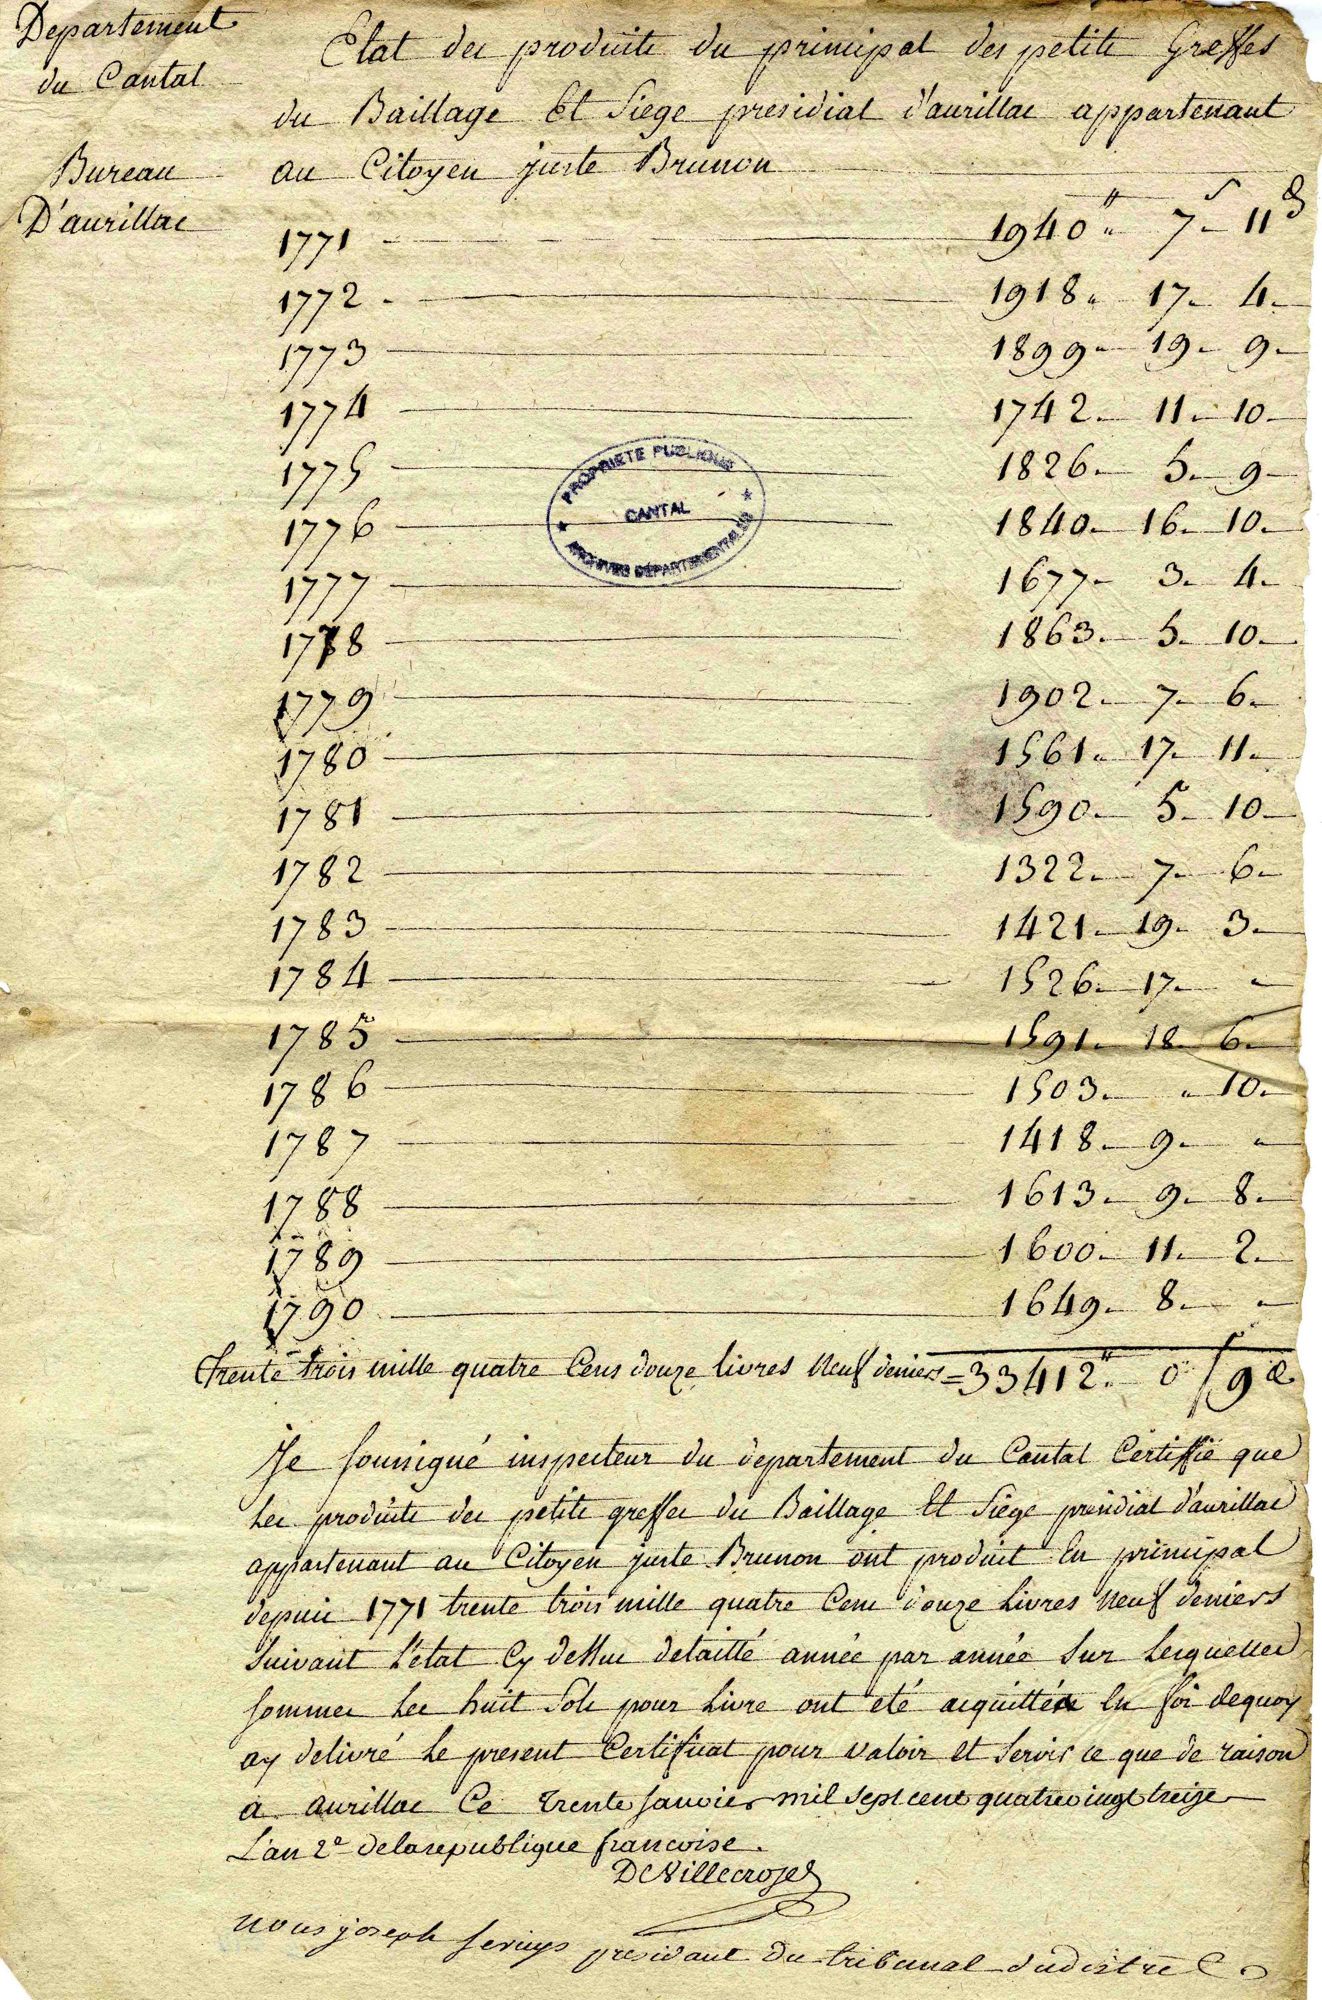 Departement
du Cantal
Bureau
D'aurillac
Etat des produits du principal des petits Greffes
du Baillage Et Siege presidial d'aurillac appartenant
au Citoyen juste Brunon
1771 - 1940 " 7 s 11 d
1772 - 1918 - 17 - 4 -
1773 - 1899 - 19 - 9 -
1774 - 1742 - 11 - 10 -
1775 - 1826 - 5 - 9 -
1776 - 1840 - 16 - 10 -
1777 - 1677 - 3 - 4 -
1778 - 1863 - 5 - 10 -
1779 - 1902 - 7 - 6 -
1780 - 1561 - 17 - 11 -
1781 - 1590 - 5 - 10 -
1782 - 1322 - 7 - 6 -
1783 - 1421 - 19 - 3 -
1784 - 1526 - 17 - "
1785 - 1591 - 18 - 6 -
1786 - 1503 - " 10 -
1787 - 1418 - 9 - "
1788 - 1613 - 9 - 8 -
1789 - 1600 - 11 - 2 -
1790 - 1649 - 8 - "
PROPRIETE PUBLIQUE
CANTAL
ARCHIVES DÉPARTEMENTALES
Trente trois mille quatre Cens douze livres neuf deniers = 33412 " 0 s 9 d
Je soussigné inspecteur du departement du Cantal Certiffie que
Les produits des petits greffes du Baillage Et Siège presidial d'aurillac
appartenant au Citoyen juste Brunon ont produit En principal
depuis 1771 trente trois mille quatre Cens douze Livres neuf deniers
Suivant l'etat Cy dessus detaillé année par année Sur Lesquelles
sommes Les huit Sols pour Livre ont eté acquittés En foi dequoy
ay delivré Le present Certificat pour valoir et servir ce que de raison
a aurillac Ce trente janvier mil sept cent quatrevingt treize
L'an 2e delarepublique francoise.
DeVillecroze
nous joseph seruys president du tribunal dudistric